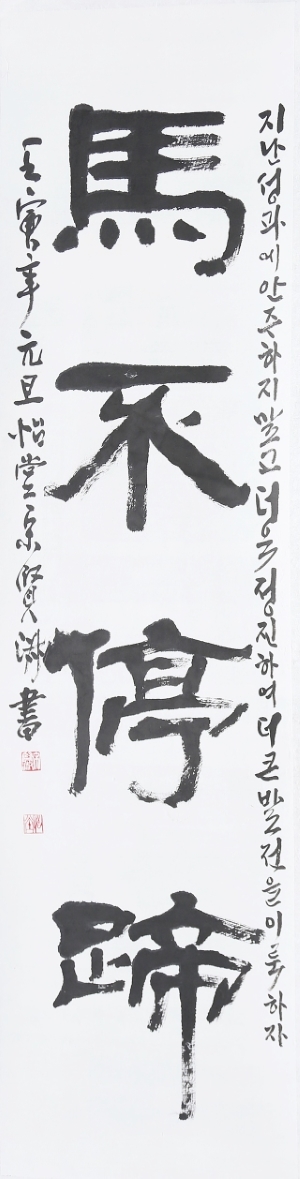 지난 성과에 안주하지 말고 더욱 정진하여 더 큰 발전을 이룩하자
馬不停蹄
壬寅年 元旦 怡堂 宋賢洙 書